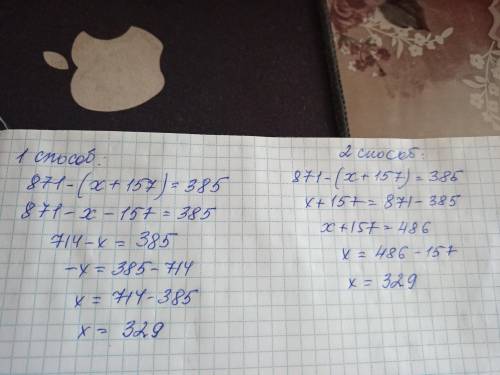 1 способ:
871-(x+157)=385
871-x-157=385
714-x=385
-x=385-714
x=714-385
x=329
2 способ:
871-(x+157)=385
x+157=871-385
x+157=486
x=486-157
x=329